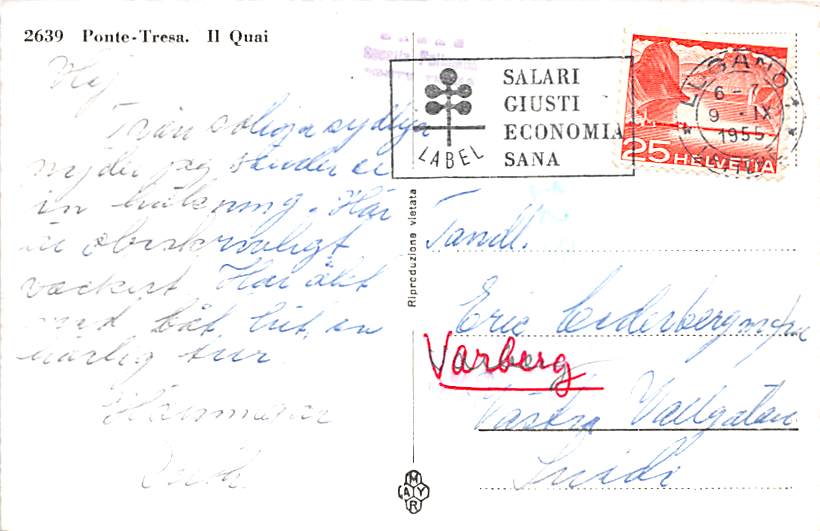 2639 Ponte-Tresa. Il Quai
Hej
Från soliga sydliga
nejder jag sänder er
en hälsning. Här
är obeskrivligt
vackert. Har åkt
med båt hit, en
härlig tur
SALARI
GIUSTI
ECONOMIA
SANA
LABEL
LUGANO
6-7
9.IX
1955
25 HELVETIA
Riproduzione vietata
Tandl.
Eric Cederberg
Varberg
Västra Vallgatan
MAYR